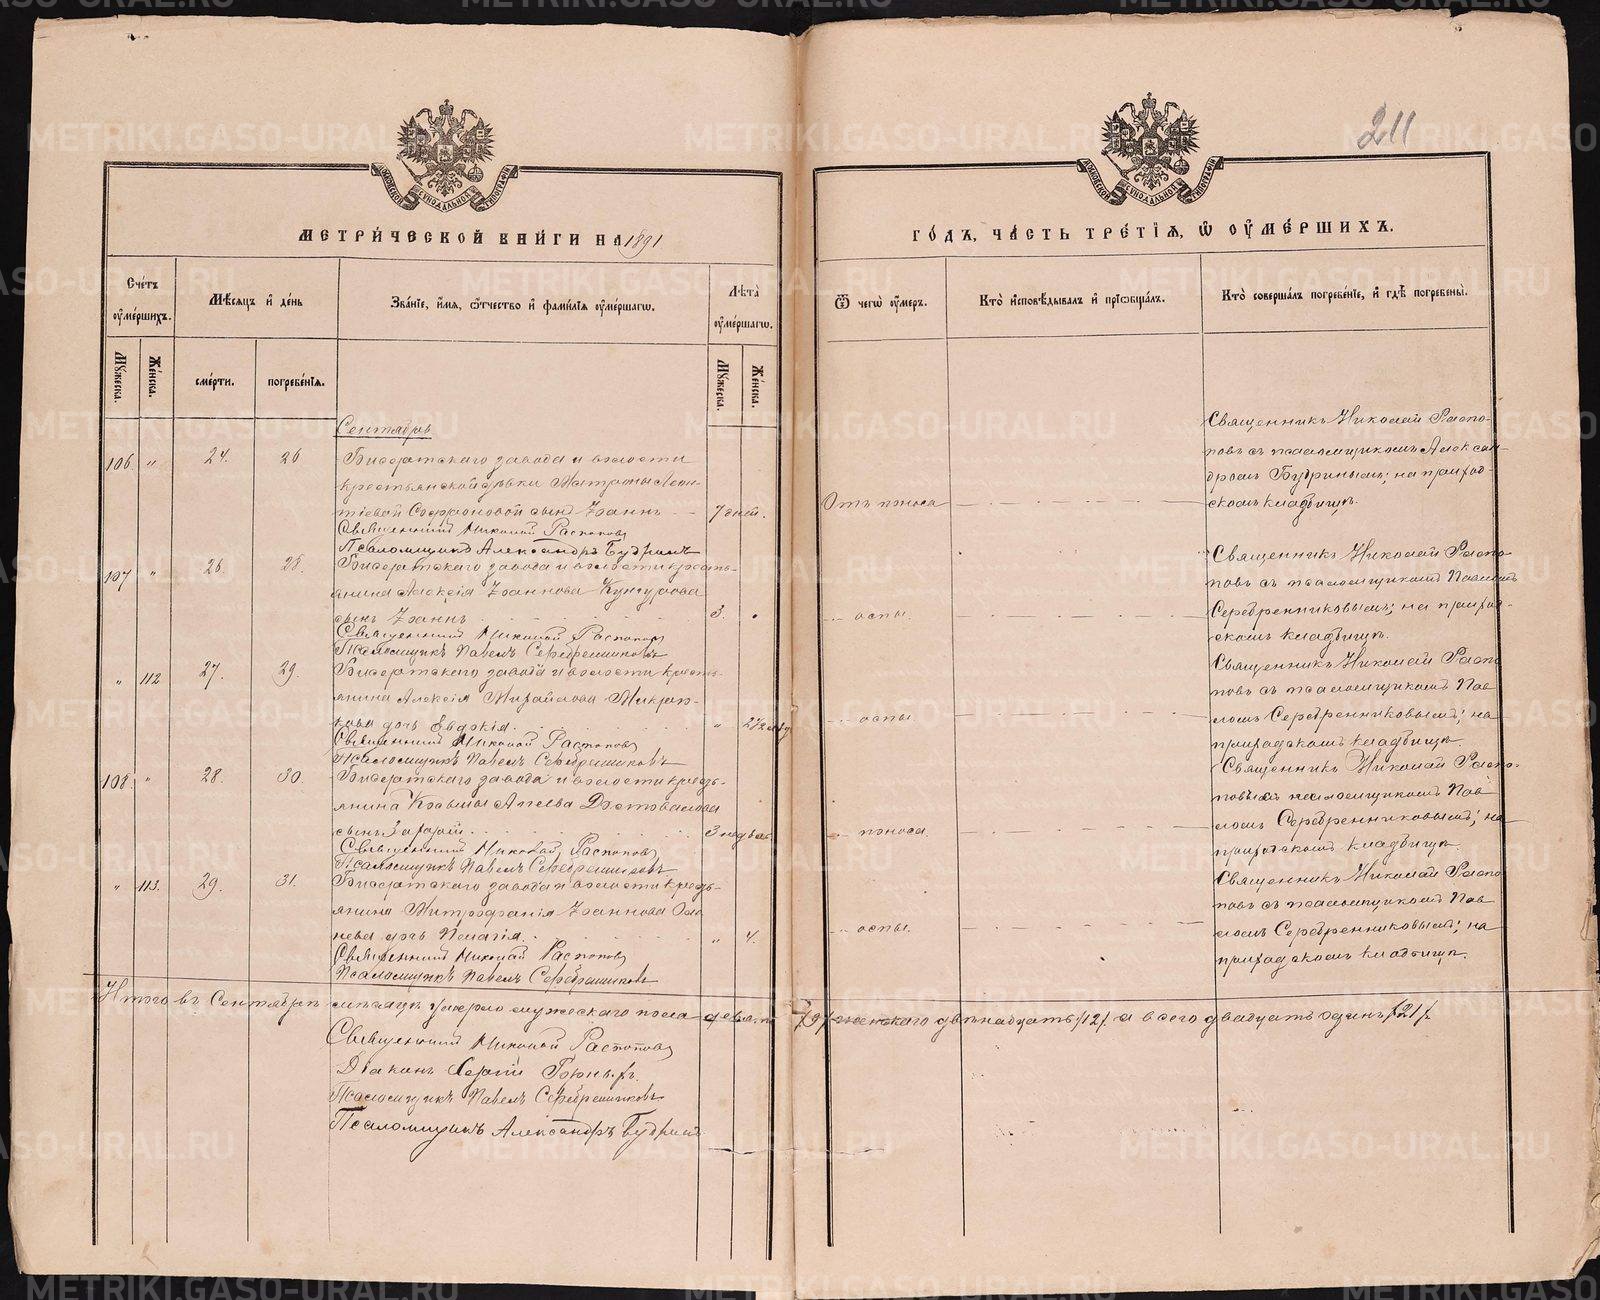 211
МЕТРИ́ЧЕСКОЙ КНИ́ГИ НА 1891
ГО́ДЪ, ЧА́СТЬ ТРЕ́ТІѦ, Ѡ ОУ҆МЕ́РШИХЪ.
Сче́тъ оу҆ме́ршихъ.
Мѣ́сяцъ и҆ де́нь
Зва́нїе, и҆́мя, ѻ҆́тчество и҆ фами́лїя оу҆ме́ршагѡ.
Лѣ́та оу҆ме́ршагѡ.
Ѿ чегѡ̀ оу҆́меръ.
Кто̀ и҆сповѣ́дывалъ и҆ прїѡбща́лъ.
Кто̀ соверша́лъ погребе́нїе, и҆ гдѣ̀ погребены̀.
Мꙋ́жеска.
Же́нска.
сме́рти.
погребе́нїя.
Мꙋ́жеска.
Же́нска.
Сентябрь
106. " 24. 26
Бисертскаго завода и волости
крестьянской дѣвки Матроны
сынъ Іоаннъ 7 дней. Отъ поноса
Священникъ Николай Распоповъ
Псаломщикъ Александръ Будринъ
Священникъ Николай Распо-
повъ съ псаломщикомъ Алексан-
дромъ Будринымъ; на приход-
скомъ кладбищѣ.
107 " 26. 28.
Бисертскаго завода и волости кресть-
янина Алексія Іоаннова
сынъ Іоаннъ 3. оспы.
Священникъ Николай Распоповъ
Псаломщикъ Павелъ Серебренниковъ
Священникъ Николай Распо-
повъ съ псаломщикомъ Павломъ
Серебренниковымъ; на приход-
скомъ кладбищѣ.
" 112 27. 29.
Бисертскаго завода и волости кресть-
янина Алексія Михайлова
дочь Евдокія. " оспы.
Священникъ Николай Распоповъ
Псаломщикъ Павелъ Серебренниковъ
Священникъ Николай Распо-
повъ съ псаломщикомъ Пав-
ломъ Серебренниковымъ; на
приходскомъ кладбищѣ.
108. " 28. 30.
Бисертскаго завода и волости кресть-
янина Козьмы Достовалова
сынъ 3 недѣль поноса.
Священникъ Николай Распоповъ
Псаломщикъ Павелъ Серебренниковъ
Священникъ Николай Распо-
повъ съ псаломщикомъ Пав-
ломъ Серебренниковымъ; на
приходскомъ кладбищѣ.
" 113. 29. 31.
Бисертскаго завода и волости кресть-
янина Митрофанія Іоаннова
дочь Пелагія. " 4. оспы.
Священникъ Николай Распоповъ
Псаломщикъ Павелъ Серебренниковъ
Священникъ Николай Распо-
повъ съ псаломщикомъ Пав-
ломъ Серебренниковымъ; на
приходскомъ кладбищѣ.
Итого въ Сентябрѣ мѣсяцѣ умерло мужескаго пола девять /9/ женскаго двѣнадцать /12/. а всего двадцать одинъ /21/.
Священникъ Николай Распоповъ
Діаконъ Сергій
Псаломщикъ Павелъ Серебренниковъ
Псаломщикъ Александръ Будринъ
METRIKI.GASO-URAL.RU